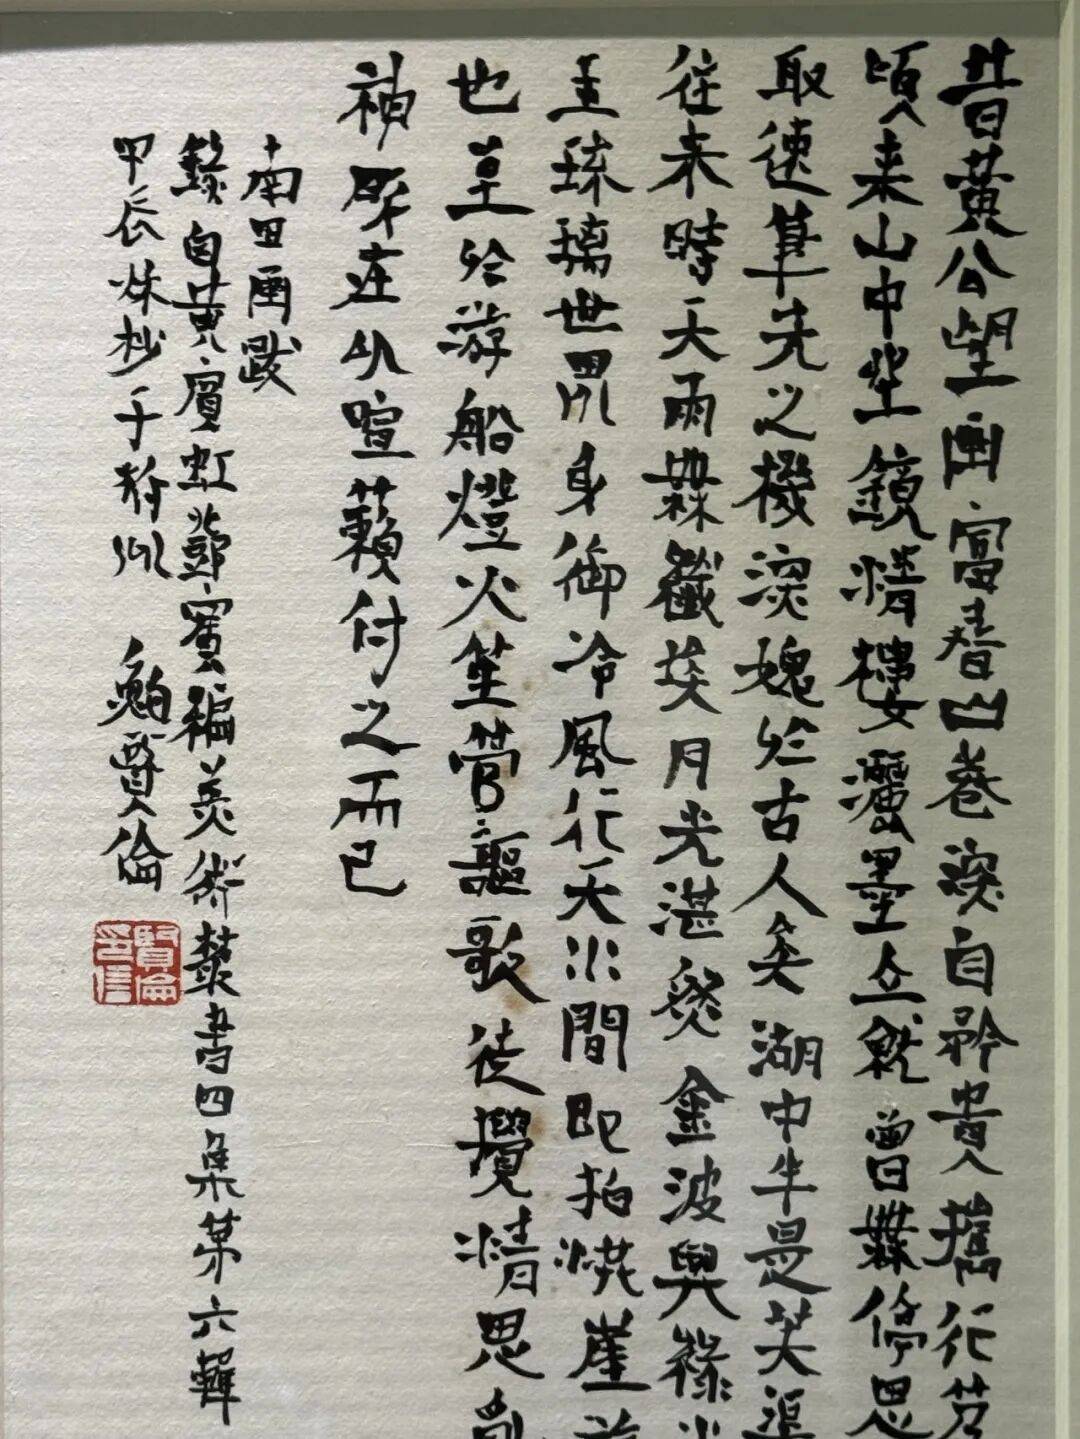 昔黃公望画富春山卷深自矜貴攜行
頃來山中坐鏡清樓灑墨立就曾無停思
取速筆先之機深媿於古人矣湖中半是芙渠
往來時天雨無纖埃月光湛然金波與綠
王琉璃世界身御冷風行天水間即拍洪崖
也至於游船燈火笙管謳歌徒攪清思亂
禎所在以喧籟付之而已
南田画跋
錄自黃賓虹鄧實編美術叢書四集第六輯
甲辰秋抄于 鮑賢倫
賢倫